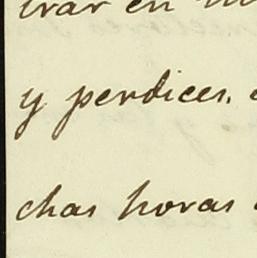 trar en
y perdices.
chas horas